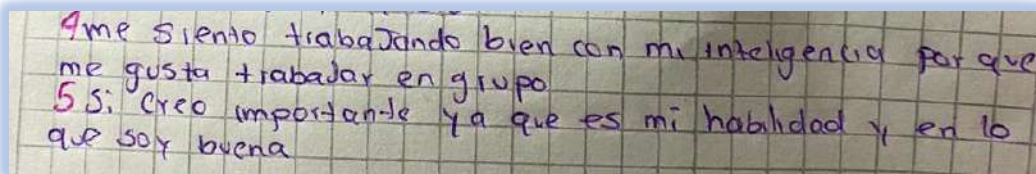 4me siento trabajando bien con mi inteligencia por que
me gusta trabajar en grupo
5 Si creo importante ya que es mi habilidad y en lo
que soy buena